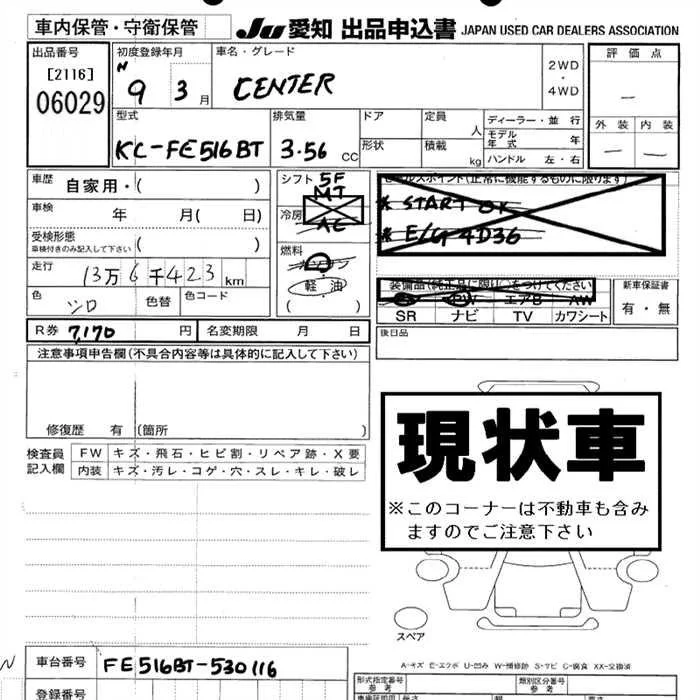 車内保管・守衛保管
Ju 愛知 出品申込書 JAPAN USED CAR DEALERS ASSOCIATION
出品番号
[2116]
06029
初度登録年月
H 9 3月
車名・グレード
CENTER
2WD
・
4WD
評価点
―
外装 内装
― ―
型式
KC-FE516BT
排気量
3.56 CC
ドア
形状
定員
人
積載
kg
ディーラー・並行
モデル年式 年
ハンドル 左・右
車歴 自家用・( )
車検 年 月( 日)
受検形態
車検付きのみ記入して下さい ( )
走行 13万6千423km
色 シロ 色替 色コード
シフト 5F
MT
冷房 AC
燃料
ガソリン
軽・油
( )
セールスポイント(正常に機能するものに限ります)
※ START OK
※ E/G 4D36
装備品(純正品に限り○をつけてください)
エアB AW
SR ナビ TV カワシート
新車保証書
有・無
R券 7,170 円 名変期限 月 日
後日品
注意事項申告欄(不具合内容等は具体的に記入して下さい)
修復歴 有 (箇所 )
検査員記入欄
FW キズ・飛石・ヒビ割・リペア跡・X要
内装 キズ・汚レ・コゲ・穴・スレ・キレ・破レ
現状車
※このコーナーは不動車も含み
ますのでご注意下さい
スペア
A-キズ E-エクボ U-凹み W-補修跡 S-サビ C-腐食 XX-交換済
N
車台番号 FE516BT-530116
登録番号
形式指定番号
参考
類別区分番号
参考